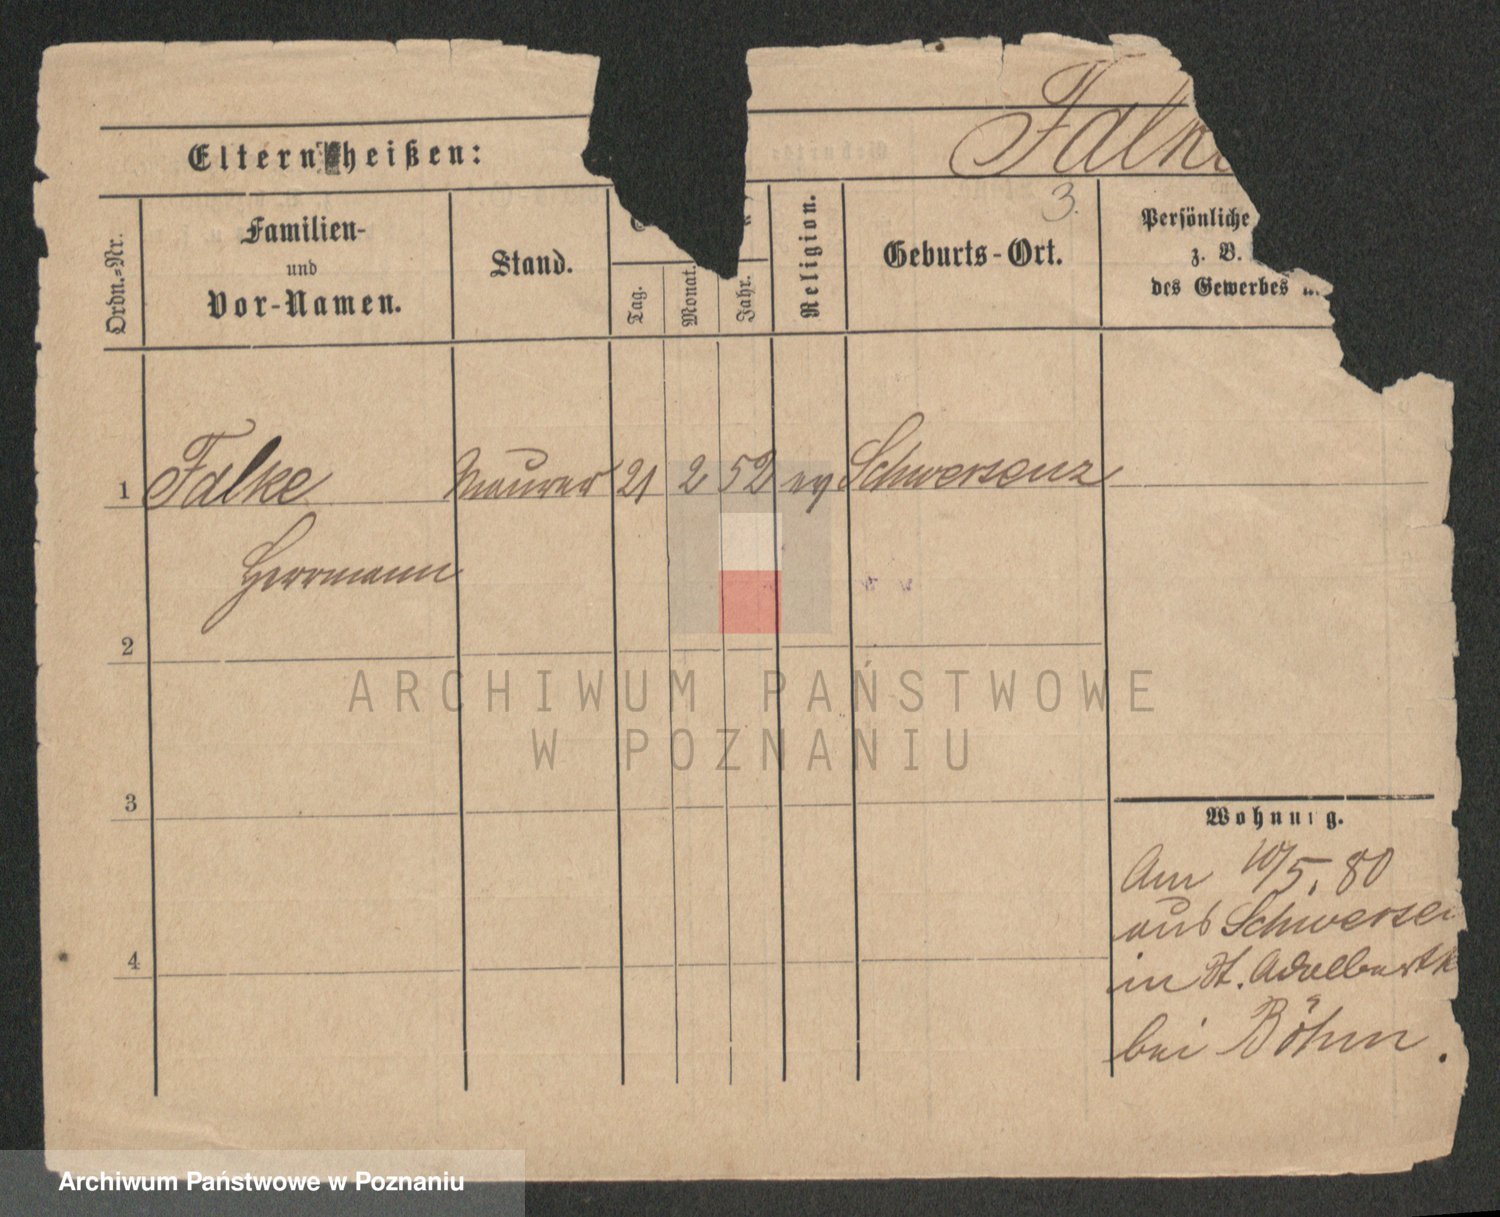 Falke
Eltern heißen:
3.
Ordn.-Nr.
Familien-
und
Vor-Namen.
Stand.
Tag.
Monat.
Jahr.
Religion.
Geburts-Ort.
Persönliche
z. B.
des Gewerbes
1 Falke Maurer 21 2 52 ev Schwersenz
Herrmann
2
3
4
Wohnung.
Am 10/5. 80
aus Schwersen
in St. Adelbertk
bei Böhm.
ARCHIWUM PAŃSTWOWE
W POZNANIU
Archiwum Państwowe w Poznaniu